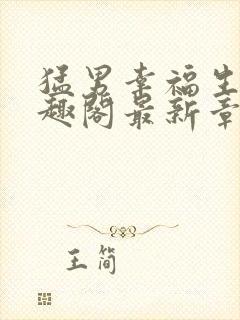 猛男幸福生
趣阁最新章
王简